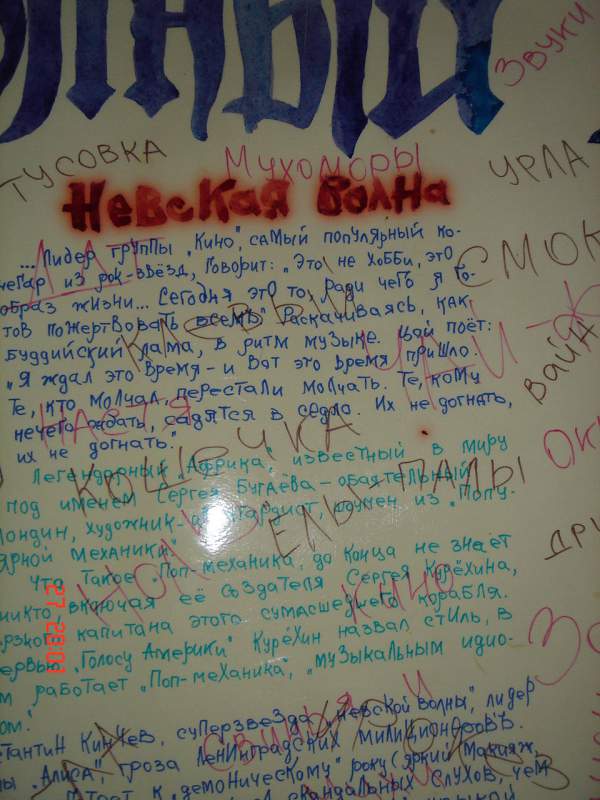 ЗВУКИ
ТУСОВКА
Мухоморы
УРЛА
НЕВСКАЯ ВОЛНА
...Лидер группы „Кино", самый популярный ко-
чегар из рок-звёзд, говорит: „Это не хобби, это
образ жизни... Сегодня это то, ради чего я го-
тов пожертвовать всемъ" Раскачиваясь, как
буддийский лама, в ритм музыке. Цой поёт:
„Я ждал это время - и вот это время пришло.
Те, кто молчал, перестали молчать. Те, кому
нечего ждать, садятся в седло. Их не догнать,
их не догнать."
СМОК
ВАЙДА
КОШЕЧКА
Легендарный „Африка", известный в миру
под именем Сергея Бугаёва - обаятельный
блондин, художник-авангардист, шоумен из „Попу-
лярной механики"
Что такое „Поп-механика", до конца не знает
никто, включая её создателя Сергея Курёхина,
дерзкого капитана этого сумасшедшего корабля.
„Голосу Америки" Курёхин назвал стиль, в
работает „Поп-механика", „музыкальным идио-
КИНО
27-28:03
Константин Кинчев, суперзвезда „Невской волны", лидер
„Алиса", гроза ленинградских милиционеровъ.
к „демоническому" року (яркий макияж,
скандальных слухов, чем